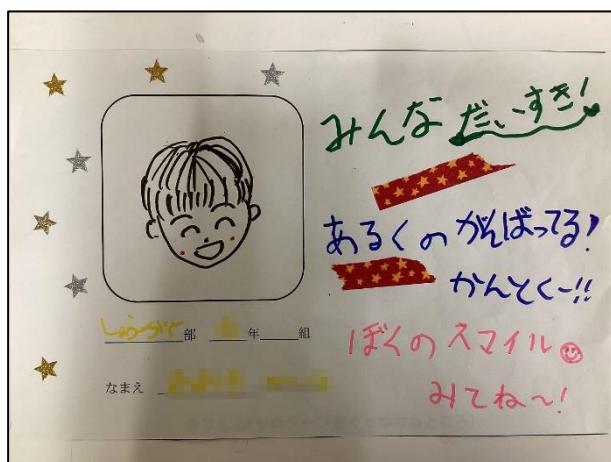 みんな だいすき!
あるくの がんばってる!
かんとくー!!
ぼくの スマイル
みてね〜!
しょうがく部 年 組
なまえ